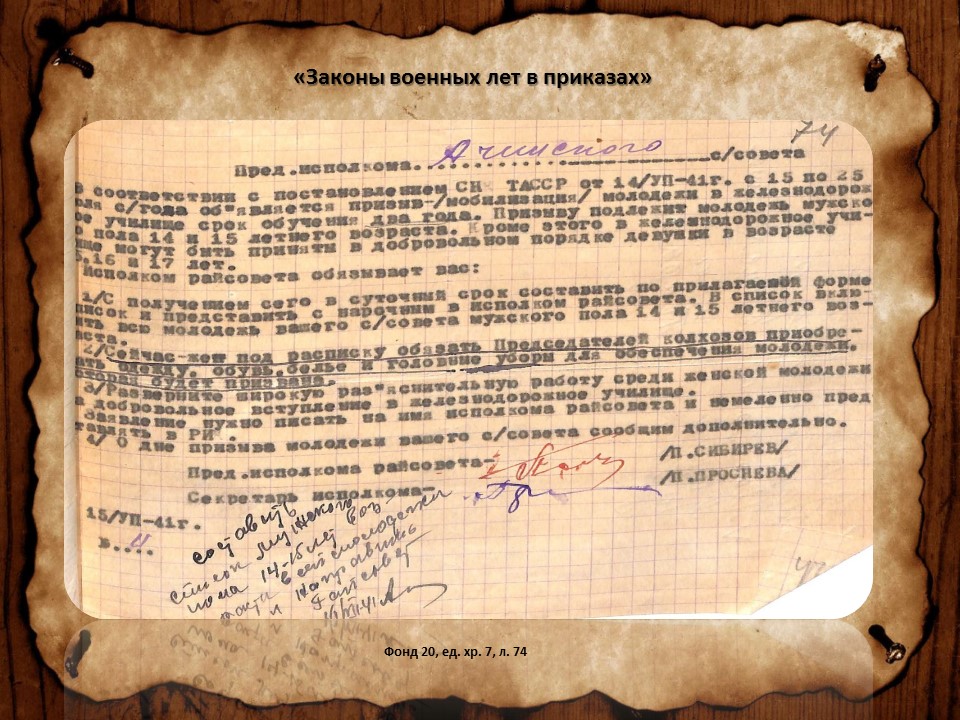 «Законы военных лет в приказах»
74
Пред.исполкома. Ачинского с/совета
в соответствии с постановлением СНК ТАССР от 14/УП-41г. с 15 по 25
ля с/года об"является призыв-/мобилизация/ молодежи в железнодорож
ое училище срок обучения два года. Призыву подлежит молодежь мужско
о пола 14 и 15 летнего возраста. Кроме этого в железнодорожное учи-
ище могут быть приняты в добровольном порядке девушки в возрасте
5,16 и 17 лет.
Исполком райсовета обязывает вас:
1/С получением сего в суточный срок составить по прилагаемой форме
писок и представить с нарочным в исполком райсовета. В список вклю-
ить всю молодежь вашего с/совета мужского пола 14 и 15 летнего воз-
аста.
2/Сейчас-жен под расписку обязать Председателей колхозов приобре-
ать одежду, обувь,белье и головные уборы для обеспечения молодежи,
оторая будет призвана.
3/Разверните широкую раз"яснительную работу среди женской молодежи
а добровольное вступление в железнодорожное училище.
Заявление нужно писать на имя исполкома райсовета и немеленно пред
тавлять в РИ .
4/ О дне призыва молодежи вашего с/совета сообщим дополнительно.
Пред.исполкома райсовета- /П.СИБИРЕВ/
Секретарь исполкома- /П.ПРОСНЕВА/
15/УП-41г.
в....
составить
список мужского
пола 14-15 лет воз-
раста всей молодежи
и направить